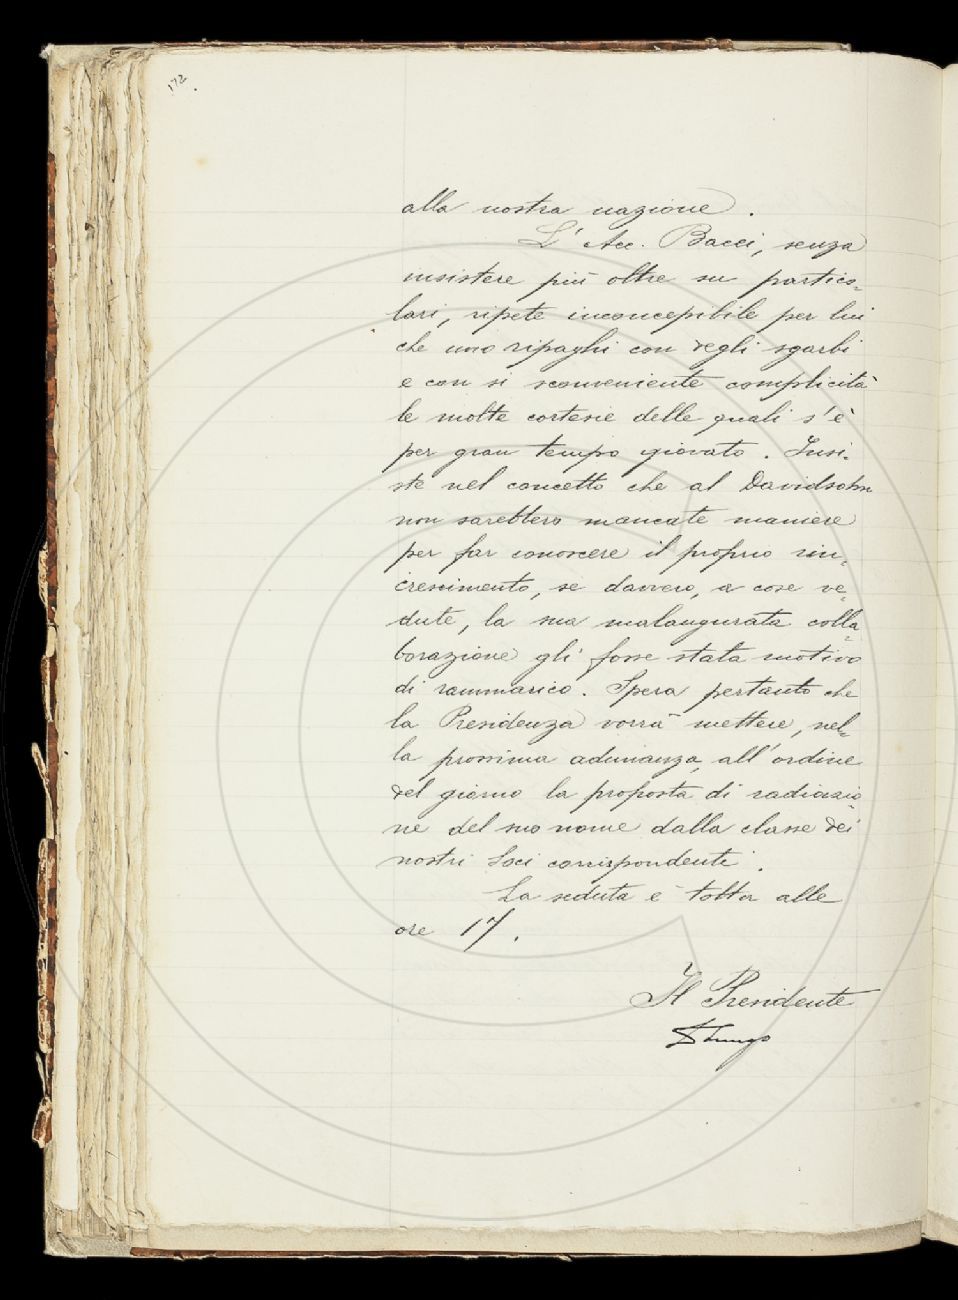 172.
alla nostra nazione.
L'Acc. Bacci, senza
insistere più oltre su partico-
lari, ripete inconcepibile per lui
che uno ripaghi con degli sgarbi
e con sì sconveniente complicità
le molte cortesie delle quali s'è
per gran tempo giovato. Insi-
ste nel concetto che al Davidsohn
non sarebbero mancate maniere
per far conoscere il proprio rin-
crescimento, se davvero, a cose ve-
dute, la sua malaugurata colla-
borazione gli fosse stata motivo
di rammarico. Spera pertanto che
la Presidenza vorrà mettere, nel-
la prossima adunanza, all'ordine
del giorno la proposta di radiazio-
ne del suo nome dalla classe dei
nostri Soci corrispondenti.
La seduta è tolta alle
ore 17.
Il Presidente